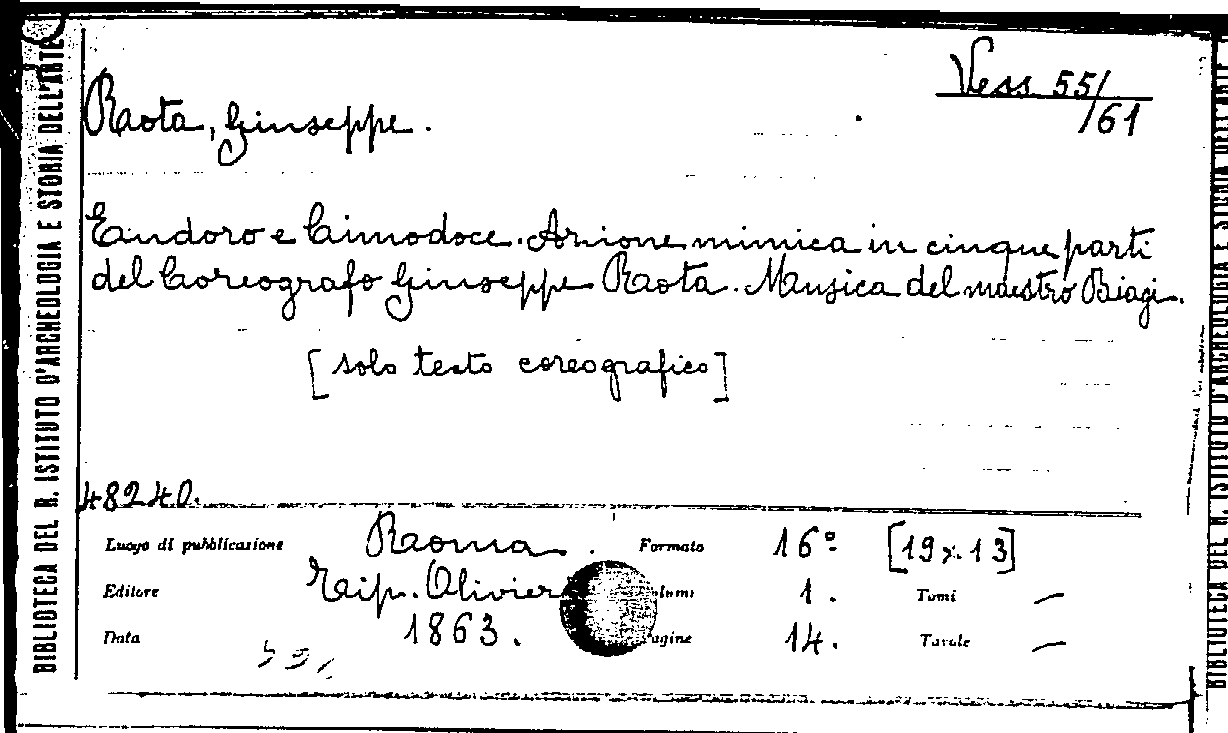 Vess 55/
/61
Raota, Giuseppe.
Eudoro e Cimodoce. Azione mimica in cinque parti
del Coreografo Giuseppe Raota. Musica del maestro Biagi.
[solo testo coreografico]
48240.
Luogo di pubblicazione Roma. Formato 16° [19x13]
Editore Tip. Olivier lumi 1. Tomi —
Data 1863. agine 14. Tavole —
BIBLIOTECA DEL R. ISTITUTO D'ARCHEOLOGIA E STORIA DELL'ARTE
BIBLIOTECA DEL R. ISTITUTO D'ARCHEOLOGIA E STORIA DELL'ARTE